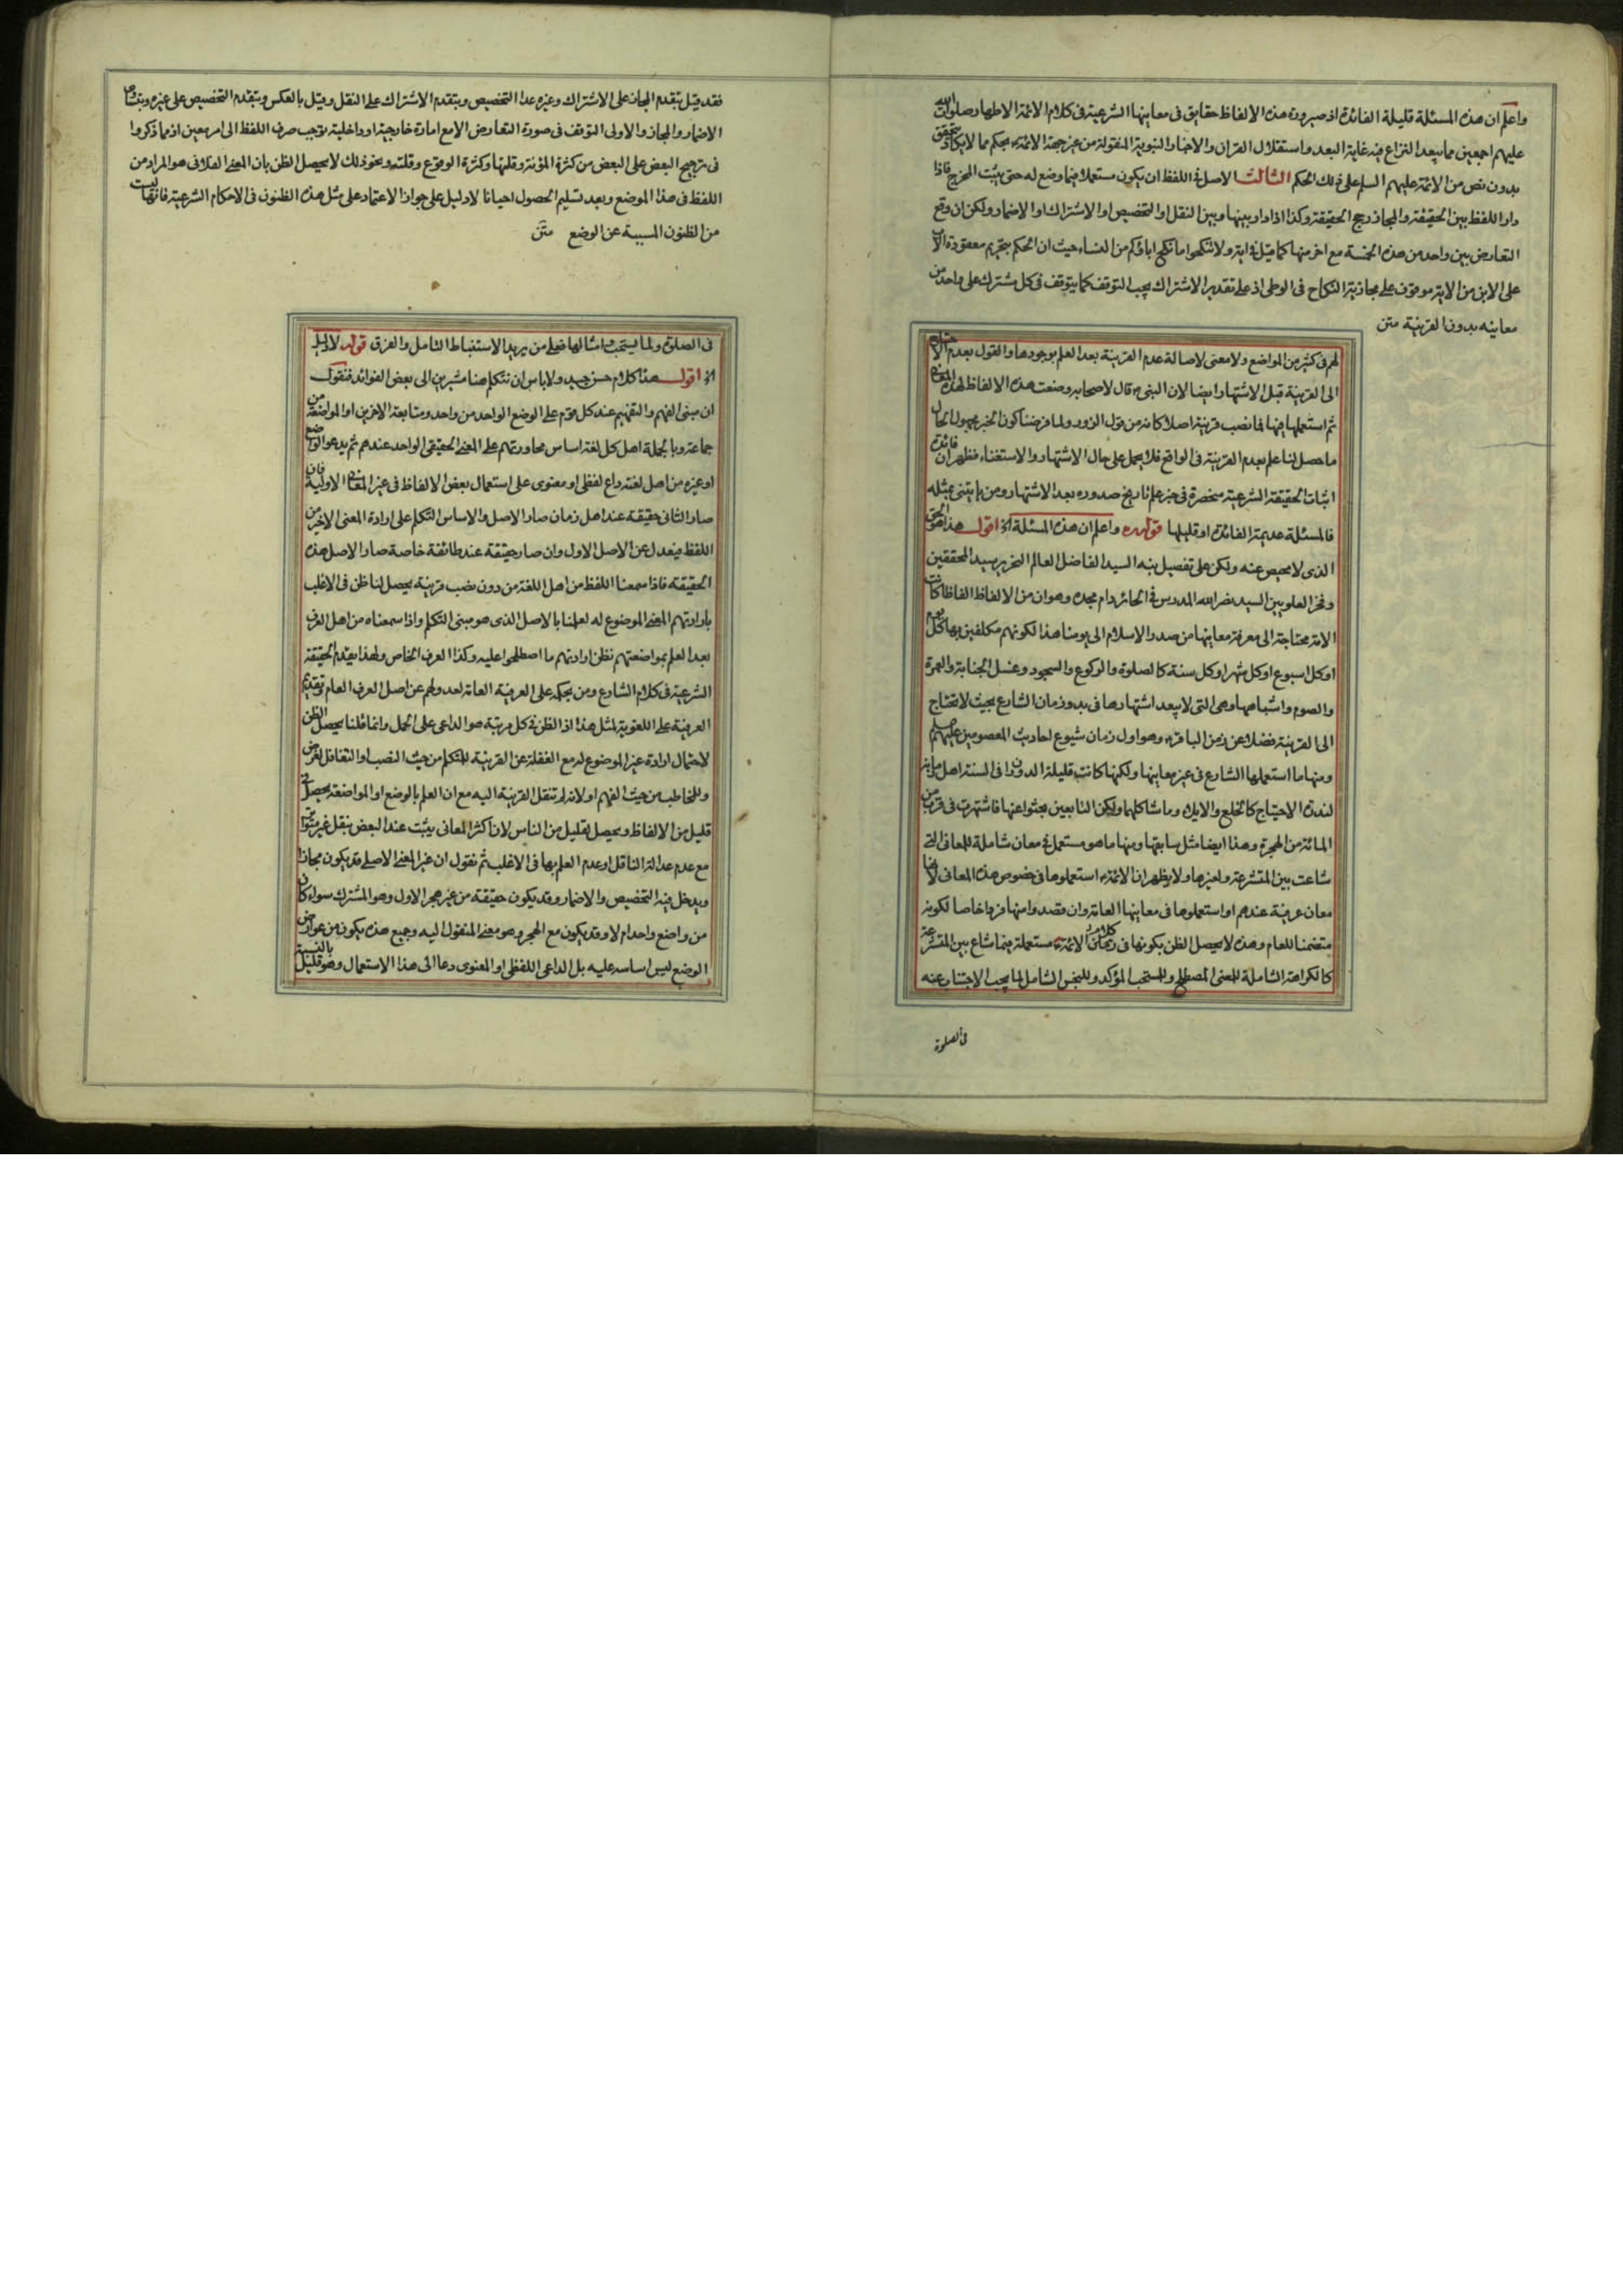 واعلم ان هذه المسئلة قليلة الفائدة اذ صيرورة هذه الالفاظ حقايق فى معاينها الشرعية فى كلام الائمة الاطهار صلوات الله
عليهم اجمعين مما يبعد النزاع فيه غاية البعد واستقلال القران والاخبار النبوية المنقولة من غير جهة الائمة ع بحكم مما لا يكاد يتحقق
بدون نص من الائمة عليهم السلم على ذلك الحكم الثالث الاصل فى اللفظ ان يكون مستعملا فيما وضع له حتى يثبت المخرج فاذا
دار اللفظ بين الحقيقة والمجاز رجح الحقيقة وكذا اذا دار بينها وبين النقل او التخصيص او الاشتراك او الاضمار ولكن ان وقع
التعارض بين واحد من هذه الخمسة مع اخر منها كما قيل فى اية ولا تنكحوا ما نكح اباؤكم من النساء حيث ان الحكم بتحريم معقودة الاب
على الابن من الاية موقوف على مجازية النكاح فى الوطى اذ على تقدير الاشتراك يجب التوقف كما يتوقف فى كل مشترك على واحد من
معاينه بدون القرينة متن
لهم فى كثير من المواضع ولا معنى لاصالة عدم القرينة بعد العلم بوجودها والقول بعدم الاحتياج
الى القرينة قبل الاشتهار وايضا الان النبى ص قال لاصحابه وضعت هذه الالفاظ لهذه المعانى
ثم استعملها فيها فما نصب قرينة اصلا كانه من قول الزور ولما فرضنا كون الخبر مجهول الحال
ما حصل لنا علم بعدم القرينة فى الواقع فلا يحمل على حال الاشتهار والاستغناء فظهر ان فائدة
اثبات الحقيقة الشرعية منحصرة فى خبر علم تاريخ صدوره بعد الاشتهار ومن يعتنى بمثله
فالمسئلة عديمة الفائدة او قليلها قوله ره واعلم ان هذه المسئلة اخ اقول هذا هو الحق
الذى لا محيص عنه ولكن على تفصيل نبه السيد الفاضل العالم النحرير سيد المحققين
وفخر العلويين السيد نصر الله المدرس فى الحائر دام مجده وهو ان من الالفاظ الفاظا كانت
الامة محتاجة الى معرفة معاينها من صدر الاسلام الى يومنا هذا لكونهم مكلفين بها كل يوم
او كل اسبوع او كل شهر او كل سنة كالصلوة والركوع والسجود وغسل الجنابة والعمرة
والصوم واشباهها وهى التى لا يبعد اشتهارها فى بدو زمان الشارع بحيث لا تحتاج
الى القرينة فضلا عن زمن الباقر ع وهو اول زمان شيوع احاديث المعصومين عليهم السلم
ومنها ما استعملها الشارع فى غير معاينها ولكنها كانت قليلة الدوران فى السنة اهل زمانه
لندرة الاحتياج كالخلع والايلاء وما شاكلهما ولكن التابعين بحثوا عنها فاشتهرت فى قرب من
المائة من الهجرة وهذا ايضا مثل سابقها ومنها ما هو مستعمل فى معان شاملة للمعانى التى
شاعت بين المتشرعة ولغيرها ولا يظهر ان الائمة ع استعملوها فى خصوص هذه المعانى لانها
معان عرفية عندهم او استعملوها فى معاينها العامة وان قصدوا منها فردا خاصا لكونه
متضمنا للعام وهذه لا يحصل الظن بكونها فى كلام الائمة ع مستعملة فيما شاع بين المتشرعة
كالكراهة الشاملة للمعنى المصطلح والمستحب المؤكد وللنجس الشامل لما يجب الاجتناب عنه
فى الصلوة
فقد قيل بتقدم المجاز على الاشتراك وغيره عدا التخصيص وبتقدم الاشتراك على النقل وقيل بالعكس وبتقدم التخصيص على غيره وبتساوى
الاضمار والمجاز والاولى التوقف فى صورة التعارض الا مع امارة خارجية او داخلية توجب صرف اللفظ الى امر معين اذ مما ذكروا
فى ترجيح البعض على البعض من كثرة المؤنة وقلتها وكثرة الوقوع وقلته ونحو ذلك لا يحصل الظن بان المعنى الفلانى هو المراد من
اللفظ فى هذا الموضع وبعد تسليم الحصول احيانا لا دليل على جواز الاعتماد على مثل هذه الظنون فى الاحكام الشرعية فانها ليست
من الظنون المسببة عن الوضع متن
فى الصلوة ولما يستحب وامثالها فعلى من يريد الاستنباط التامل والفرق قوله لا دليل
اخ اقول هذا كلام حسن جيد ولا باس ان نتكلم هنا مشيرين الى بعض الفوائد فنقول
ان مبنى الفهم والتفهيم عند كل قوم على الوضع الواحد من واحد ومتابعة الاخرين او المواضعة من
جماعة وبالجملة اهل كل لغة اساس محاورتهم على المعنى الحقيقى الواحد عندهم ثم يدعو الواضع
او غيره من اهل لغة داع لفظى او معنوى على استعمال بعض الالفاظ فى غير المعانى الاولية فان
صار الثانى حقيقة عند اهل زمان صار الاصل والاساس التكلم على ارادة المعنى الاخير من
اللفظ فيعدل عن الاصل الاول وان صار حقيقة عند طائفة خاصة صار الاصل هذه
الحقيقة فاذا سمعنا اللفظ من اهل اللغة من دون نصب قرينة يحصل لنا ظن فى الاغلب
بارادتهم المعنى الموضوع له لعلمنا بالاصل الذى هو مبنى التكلم واذا سمعناه من اهل العرف
بعد العلم بمواضعتهم نظن ارادتهم ما اصطلحوا عليه وكذا العرف الخاص ولهذا يقدم الحقيقة
الشرعية فى كلام الشارع ومن بحكمه على العرفية العامة لعدولهم عن اصل العرف العام وتقديم
العرفية على اللغوية لمثل هذا اذ الظن فى كل مرتبة هو الداعى على الحمل وانما قلنا يحصل الظن
لاحتمال ارادة غير الموضوع له مع الغفلة عن القرينة للمتكلم من حيث النصب او التغافل لغرض
وللمخاطب من حيث الفهم او لانه لم تنقل القرينة اليه مع ان العلم بالوضع او المواضعة يحصل فى
قليل من الالفاظ ويحصل لقليل من الناس لان اكثر المعانى يثبت عند البعض بنقل غير متواتر
مع عدم عدالة الناقل او عدم العلم بها فى الاغلب ثم نقول ان غير المعنى الاصلى قد يكون مجازا
ويدخل فيه التخصيص والاضمار وقد يكون حقيقة من غير هجر الاول وهو المشترك سواء كان
من واضع واحد ام لا وقد يكون مع الهجر وهو معنى المنقول اليه وجميع هذه يكون من عوارض
الوضع ليس اساسه عليه بل الداعى اللفظى او المعنوى دعا الى هذا الاستعمال وهو قليل بالنسبة